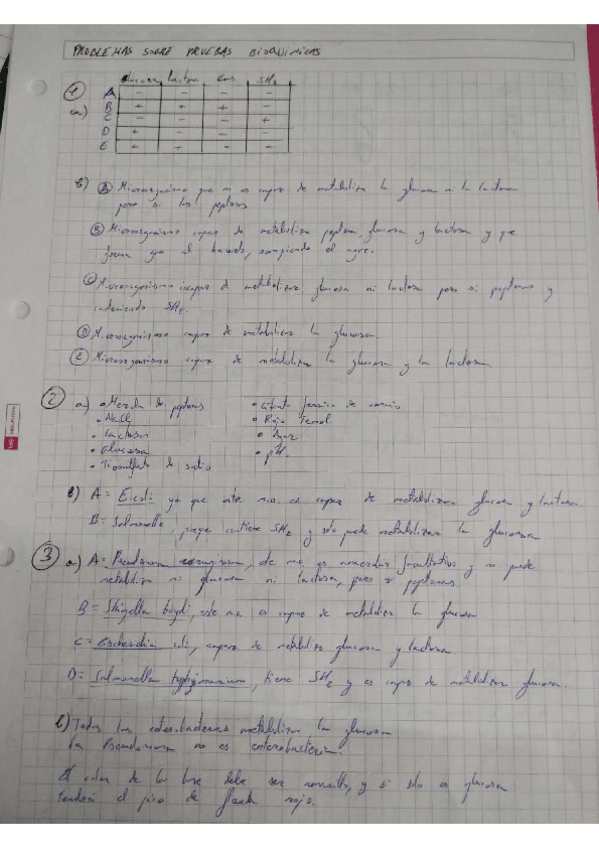 PROBLEMAS SOBRE PRUEBAS BIOQUIMICAS
Glucosa Lactosa Gas SH2
1
a)
A - - - -
B + + + -
C - - - +
D + - - -
E + + - -
b) A Microorganismo que no es capaz de metabolizar la glucosa ni la lactosa
pero si las peptonas
B Microorganismo capaz de metabolizar peptona, glucosa y lactosa y que
forma gas al hacerlo, rompiendo el agar.
C Microorganismo incapaz de metabolizar glucosa ni lactosa pero si peptonas y
conteniendo SH2.
D Microorganismo capaz de metabolizar la glucosa.
E Microorganismo capaz de metabolizar la glucosa y la lactosa
2 a) • Mezcla de peptonas • Citrato ferrico de
• NaCl • Rojo fenol
• Lactosa • Agar
• Glucosa • pH.
• Tiosulfato de sodio
b) A = E.coli ya que este m.o. es capaz de metabolizar glucosa y lactosa.
B = Salmonella, porque contiene SH2 y solo puede metabolizar la glucosa
3 a) A = Pseudomona, m.o. es anaerobio facultativo y no puede
metabolizar ni glucosa ni lactosa, pero si peptonas
B = Shigella boydi, este m.o. es capaz de metabolizar la glucosa
C = Escherichia coli, capaz de metabolizar glucosa y lactosa.
D = Salmonella, tiene SH2 y es capaz de metabolizar glucosa.
b) Todas las enterobacterias metabolizan la glucosa
La Pseudomona no es enterobacteria.
El color de la base debe ser amarillo, y si solo es glucosa
tendrá el pico de flauta rojo.